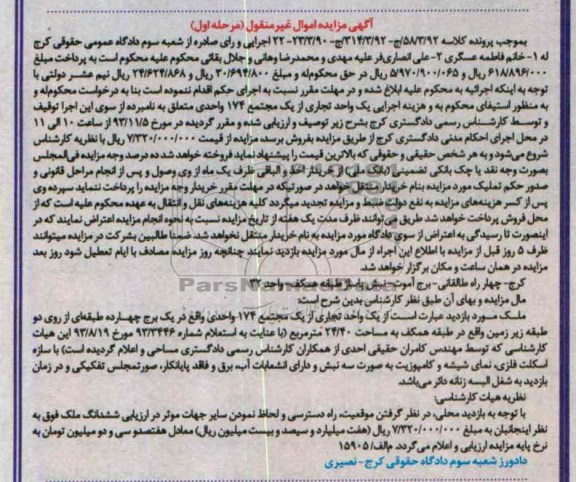 آگهی مزایده اموال غیرمنقول (مرحله اول)
بموجب پرونده کلاسه ۵۸/۳/۹۲/ج- ۳۱۴/۳/۹۲/ج- ۲۲-۲۳/۳/۹۰ اجرایی و رای صادره از شعبه سوم دادگاه عمومی حقوقی کرج
له ۱- خانم فاطمه عسگری ۲- علی انصاری‌فر علیه مهدی و محمدرضا وهانی و جلال بقائی محکوم علیه محکوم است به پرداخت مبلغ
۶۱۸/۸۹۶/۰۰۰ ریال و ۵/۹۷۰/۹۰۰/۰۶۵ ریال در حق محکوم‌له و مبلغ ۳۰/۶۹۴/۸۰۰ ریال و ۲۴/۶۲۴/۸۶۸ ریال نیم عشر دولتی با
توجه به اینکه اجرائیه به محکوم علیه ابلاغ شده و در مهلت مقرر نسبت به اجرای حکم اقدام ننموده است بنا به درخواست محکوم‌له و
به منظور استیفای محکوم به و هزینه اجرایی یک واحد تجاری از یک مجتمع ۱۷۴ واحدی متعلق به نامبرده از سوی این اجرا توقیف
و توسط کارشناس رسمی دادگستری کرج بشرح زیر توصیف و ارزیابی شده و مقرر گردیده در مورخ ۹۳/۱۱/۵ از ساعت ۱۰ الی ۱۱
در محل اجرای احکام مدنی دادگستری کرج از طریق مزایده بفروش برسد مزایده از قیمت ۷/۳۲۰/۰۰۰/۰۰۰ ریال با نظریه کارشناس
شروع می‌شود و به هر شخص حقیقی و حقوقی که بالاترین قیمت را پیشنهاد نماید فروخته خواهد شد ده درصد وجه مزایده فی‌المجلس
بصورت وجه نقد یا چک بانکی تضمینی (بانک ملی) از خریدار اخذ و الباقی ظرف یک ماه از وی وصول و پس از انجام مراحل قانونی و
صدور حکم تملیک مورد مزایده بنام خریدار منتقل خواهد در صورتیکه در مهلت مقرر خریدار وجه مزایده را پرداخت ننماید سپرده وی
پس از کسر هزینه‌های مزایده به نفع دولت ضبط و مزایده تجدید میگردد کلیه هزینه‌های نقل و انتقال به عهده محکوم علیه است که از
محل فروش پرداخت خواهد شد طریق می‌توانند ظرف مدت یک هفته از تاریخ مزایده نسبت به نحوه انجام مزایده اعتراض نمایند که در
اینصورت تا رسیدگی به اعتراض از سوی دادگاه مورد مزایده به نام خریدار منتقل نخواهد شد. ضمنا طالبین بشرکت در مزایده میتوانند
ظرف ۵ روز قبل از مزایده با اطلاع این اجراء از مال مورد مزایده بازدید نمایند چنانچه روز مزایده مصادف با ایام تعطیل شود روز بعد
مزایده در همان ساعت و مکان برگزار خواهد شد.
کرج- چهار راه طالقانی- برج آموت- نبش پاساژ طبقه همکف- واحد ۳۲
مال مزایده و بهای آن طبق نظر کارشناس بدین شرح است:
ملک مورد بازدید عبارت است از یک واحد تجاری از یک مجتمع ۱۷۴ واحدی واقع در یک برج چهارده طبقه‌ای از روی دو
طبقه زیر زمین واقع در طبقه همکف به مساحت ۲۴/۴۰ مترمربع (با عنایت به استعلام شماره ۹۳/۳۴۴۶ مورخ ۹۳/۸/۱۹ این هیات
کارشناسی که توسط مهندس کامران حقیقی احدی از همکاران کارشناس رسمی دادگستری مساحی و اعلام گردیده است) با سازه
اسکلت فلزی، نمای شیشه و کامپوزیت به صورت سه نبش و دارای انشعابات آب، برق و فاقد پایانکار، صورتمجلس تفکیکی و در زمان
بازدید به شغل البسه زنانه دائر می‌باشد.
نظریه هیات کارشناسی:
با توجه به بازدید محلی، در نظر گرفتن موقعیت، راه دسترسی و لحاظ نمودن سایر جهات موثر در ارزیابی ششدانگ ملک فوق به
نظر اینجانبان به مبلغ ۷/۳۲۰/۰۰۰/۰۰۰ ریال (هفت میلیارد و سیصد و بیست میلیون ریال) معادل هفتصدو سی و دو میلیون تومان به
نرخ پایه مزایده ارزیابی و اعلام می‌گردد. م/الف/ ۱۵۹۰۵
دادورز شعبه سوم دادگاه حقوقی کرج- نصیری